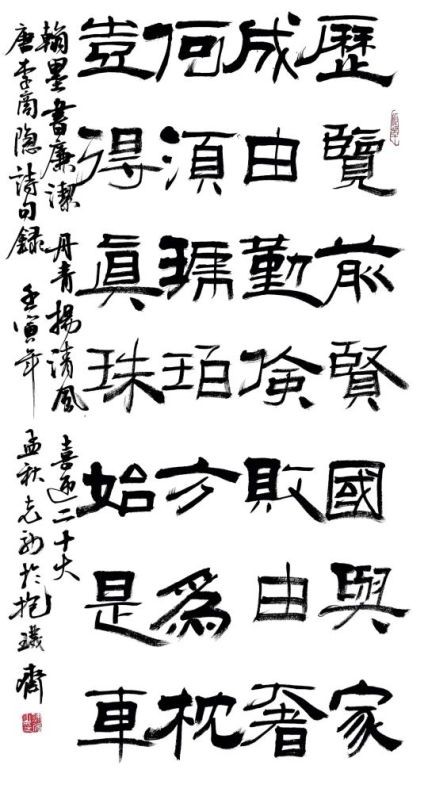 歷覽前賢國與家
成由勤儉敗由奢
何須琥珀方為枕
豈得眞珠始是車
翰墨書廉潔 丹青揚清風 喜迎二十大
唐李商隱詩句錄 壬寅年孟秋志於抱璣齋